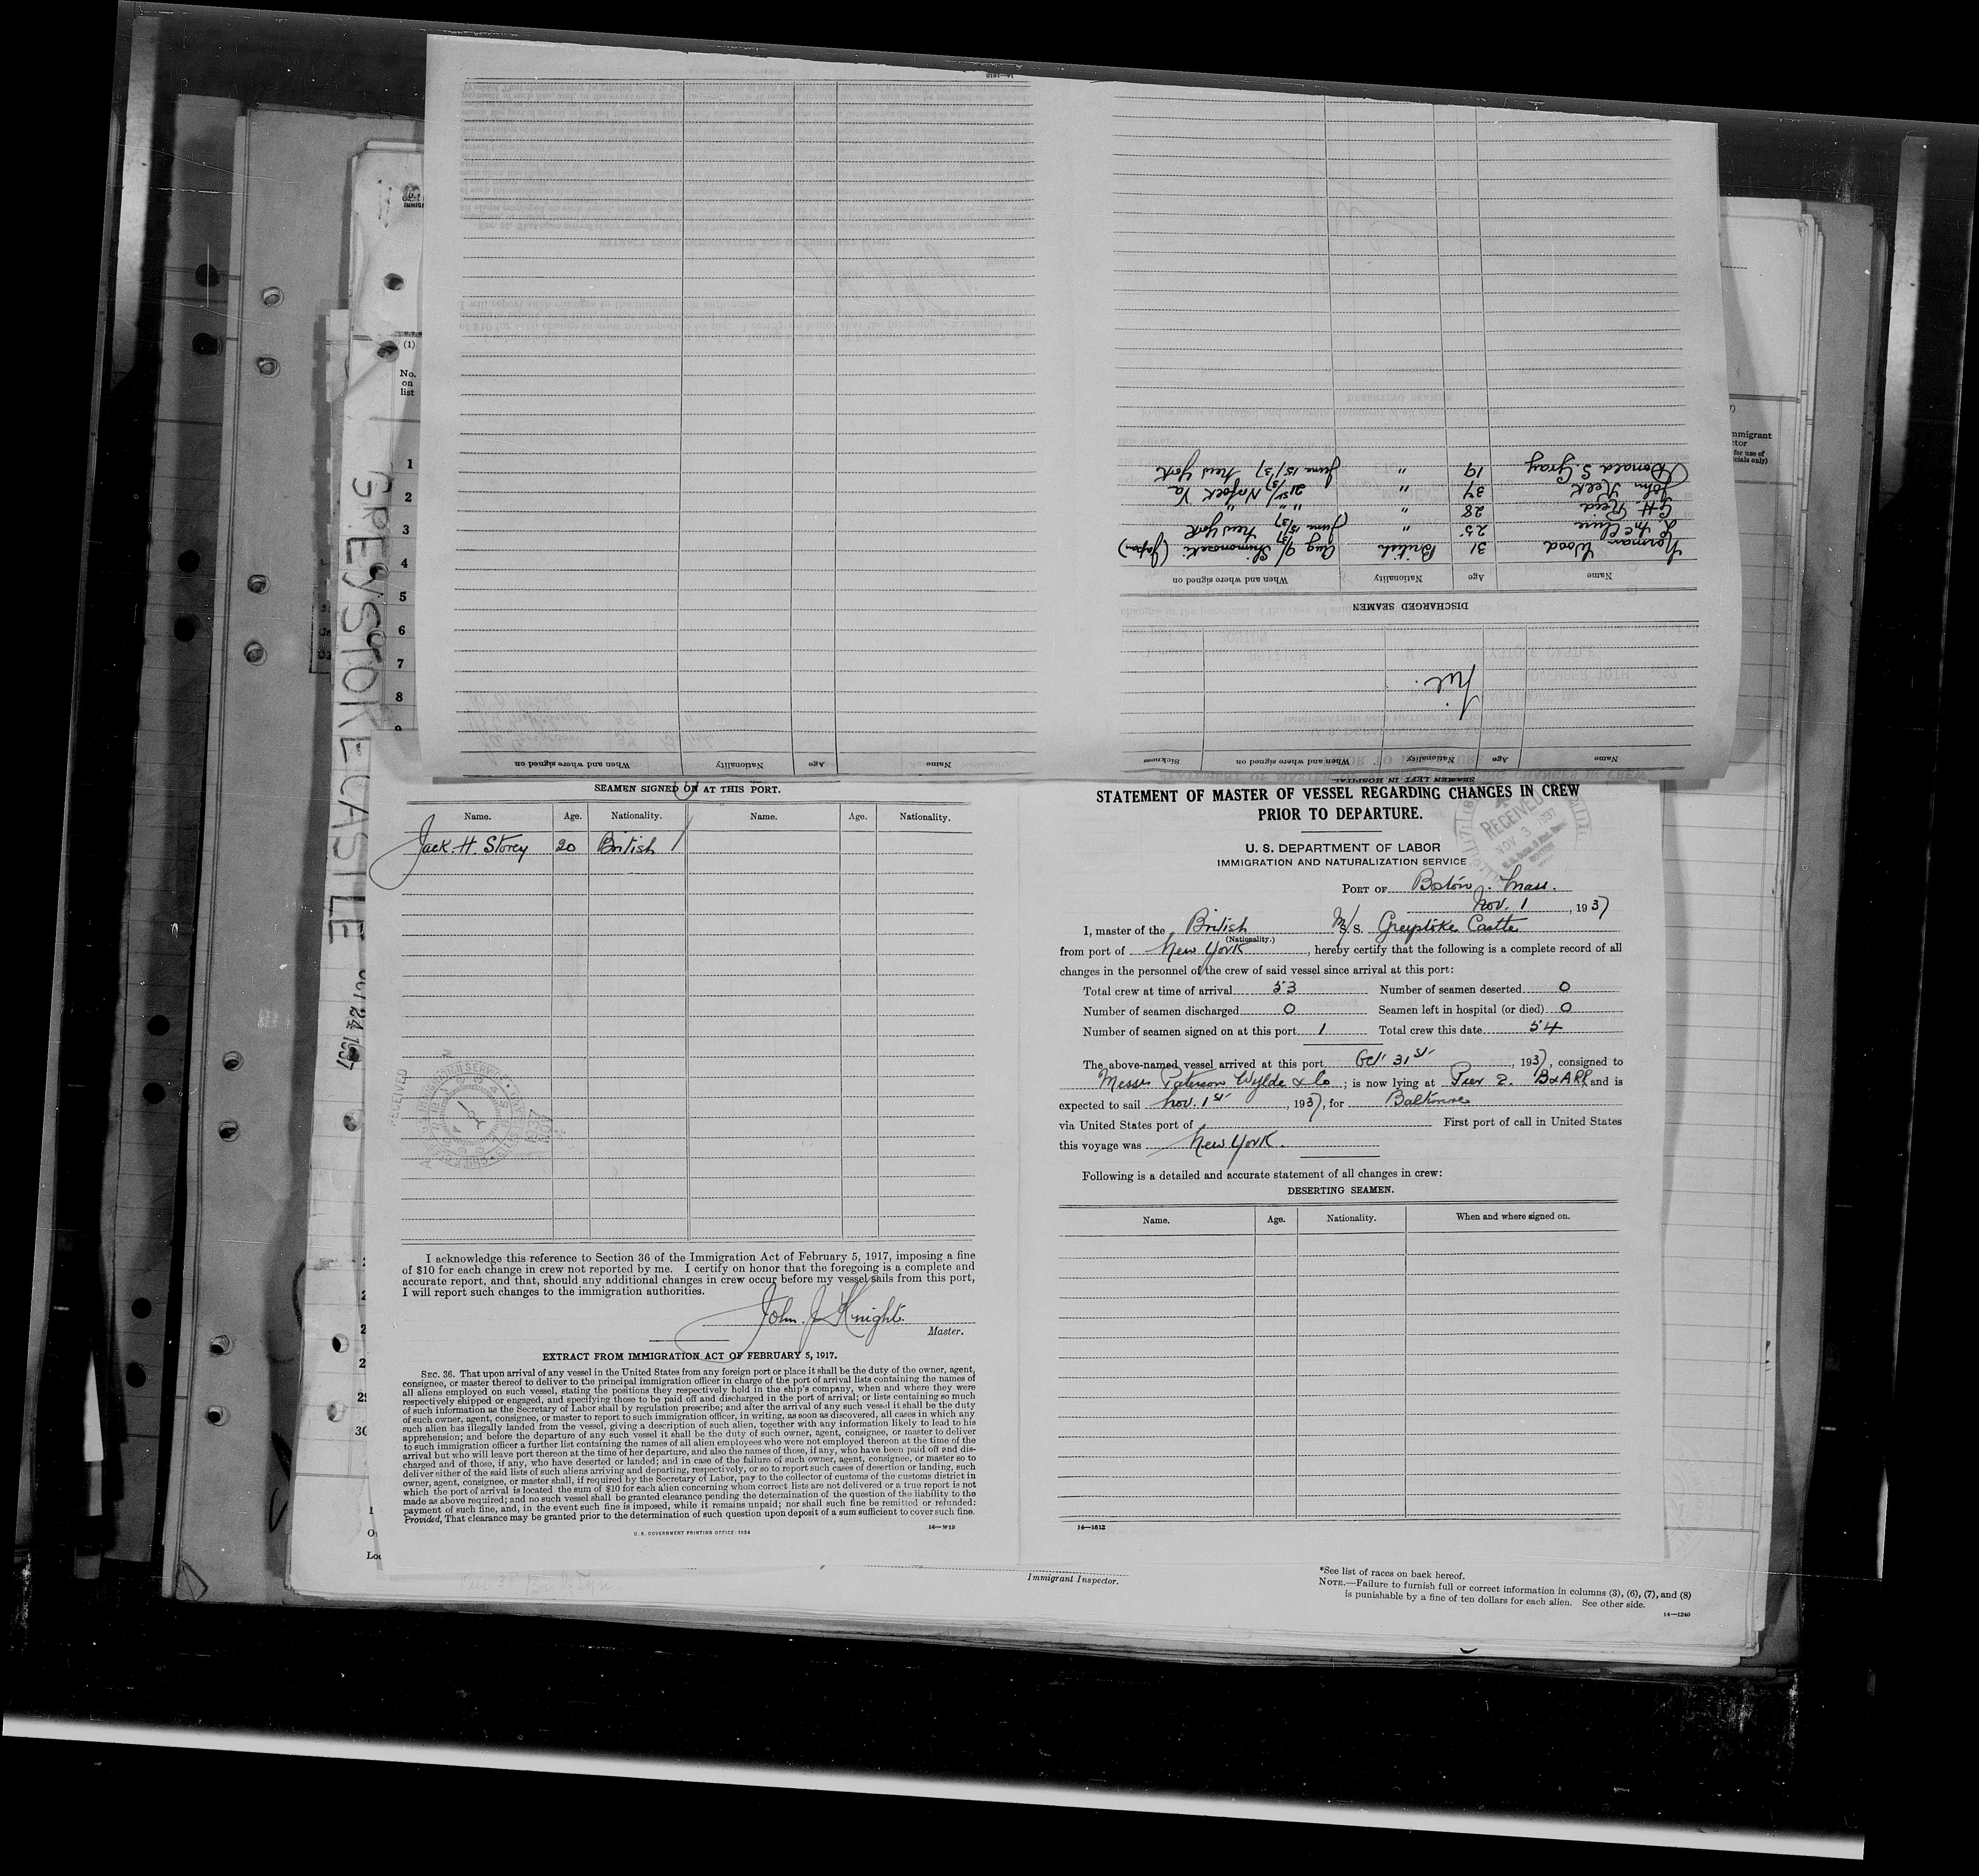 DISCHARGED SEAMEN
Name Age Nationality When and where signed on
Norman Wood 31 British Aug 9/37 Shimonoseki (Japan)
L. McClure 25 " June 15/37 New York
G. H. Reid 28 " " "
John Kelk 34 " 21st/5/37 Norfolk Va
Donald S. Gray 19 " June 15/37 New York
SEAMEN LEFT IN HOSPITAL
Name Age Nationality When and where signed on Sickness
Nil.
Name Age Nationality When and where signed on
(1)
No.
on
list
1
2
3
4
5
6
7
8
9
GREYSTOKE CASTLE OCT 24 1937
SEAMEN SIGNED ON AT THIS PORT.
Name. Age. Nationality. Name. Age. Nationality.
Jack. H. Storey 20 British
I acknowledge this reference to Section 36 of the Immigration Act of February 5, 1917, imposing a fine
of $10 for each change in crew not reported by me. I certify on honor that the foregoing is a complete and
accurate report, and that, should any additional changes in crew occur before my vessel sails from this port,
I will report such changes to the immigration authorities.
John. J. Knight.
Master.
EXTRACT FROM IMMIGRATION ACT OF FEBRUARY 5, 1917.
SEC. 36. That upon arrival of any vessel in the United States from any foreign port or place it shall be the duty of the owner, agent,
consignee, or master thereof to deliver to the principal immigration officer in charge of the port of arrival lists containing the names of
all aliens employed on such vessel, stating the positions they respectively hold in the ship's company, when and where they were
respectively shipped or engaged, and specifying those to be paid off and discharged in the port of arrival; or lists containing so much
of such information as the Secretary of Labor shall by regulation prescribe; and after the arrival of any such vessel it shall be the duty
of such owner, agent, consignee, or master to report to such immigration officer, in writing, as soon as discovered, all cases in which any
such alien has illegally landed from the vessel, giving a description of such alien, together with any information likely to lead to his
apprehension; and before the departure of any such vessel it shall be the duty of such owner, agent, consignee, or master to deliver
to such immigration officer a further list containing the names of all alien employees who were not employed thereon at the time of the
arrival but who will leave port thereon at the time of her departure, and also the names of those, if any, who have been paid off and dis-
charged and of those, if any, who have deserted or landed; and in case of the failure of such owner, agent, consignee, or master so to
deliver either of the said lists of such aliens arriving and departing, respectively, or so to report such cases of desertion or landing, such
owner, agent, consignee, or master shall, if required by the Secretary of Labor, pay to the collector of customs of the customs district in
which the port of arrival is located the sum of $10 for each alien concerning whom correct lists are not delivered or a true report is not
made as above required; and no such vessel shall be granted clearance pending the determination of the question of the liability to the
payment of such fine, and, in the event such fine is imposed, while it remains unpaid; nor shall such fine be remitted or refunded:
Provided, That clearance may be granted prior to the determination of such question upon deposit of a sum sufficient to cover such fine.
U. S. GOVERNMENT PRINTING OFFICE: 1934
STATEMENT OF MASTER OF VESSEL REGARDING CHANGES IN CREW
PRIOR TO DEPARTURE.
RECEIVED
NOV 3 1937
U. S. DEPARTMENT OF LABOR
IMMIGRATION AND NATURALIZATION SERVICE
PORT OF Boston. Mass.
Nov. 1, 1937
I, master of the British M/S. S. Greystoke Castle
(Nationality.)
from port of New York, hereby certify that the following is a complete record of all
changes in the personnel of the crew of said vessel since arrival at this port:
Total crew at time of arrival 53 Number of seamen deserted 0
Number of seamen discharged 0 Seamen left in hospital (or died) 0
Number of seamen signed on at this port 1 Total crew this date 54
The above-named vessel arrived at this port Oct 31st, 1937, consigned to
Messrs Paterson Wylde & Co; is now lying at Pier 2. B&ARR and is
expected to sail Nov. 1st, 1937, for Baltimore
via United States port of First port of call in United States
this voyage was New York.
Following is a detailed and accurate statement of all changes in crew:
DESERTING SEAMEN.
Name. Age. Nationality. When and where signed on.
14—1612
Immigrant Inspector.
*See list of races on back hereof.
NOTE.—Failure to furnish full or correct information in columns (3), (6), (7), and (8)
is punishable by a fine of ten dollars for each alien. See other side.
14—1240